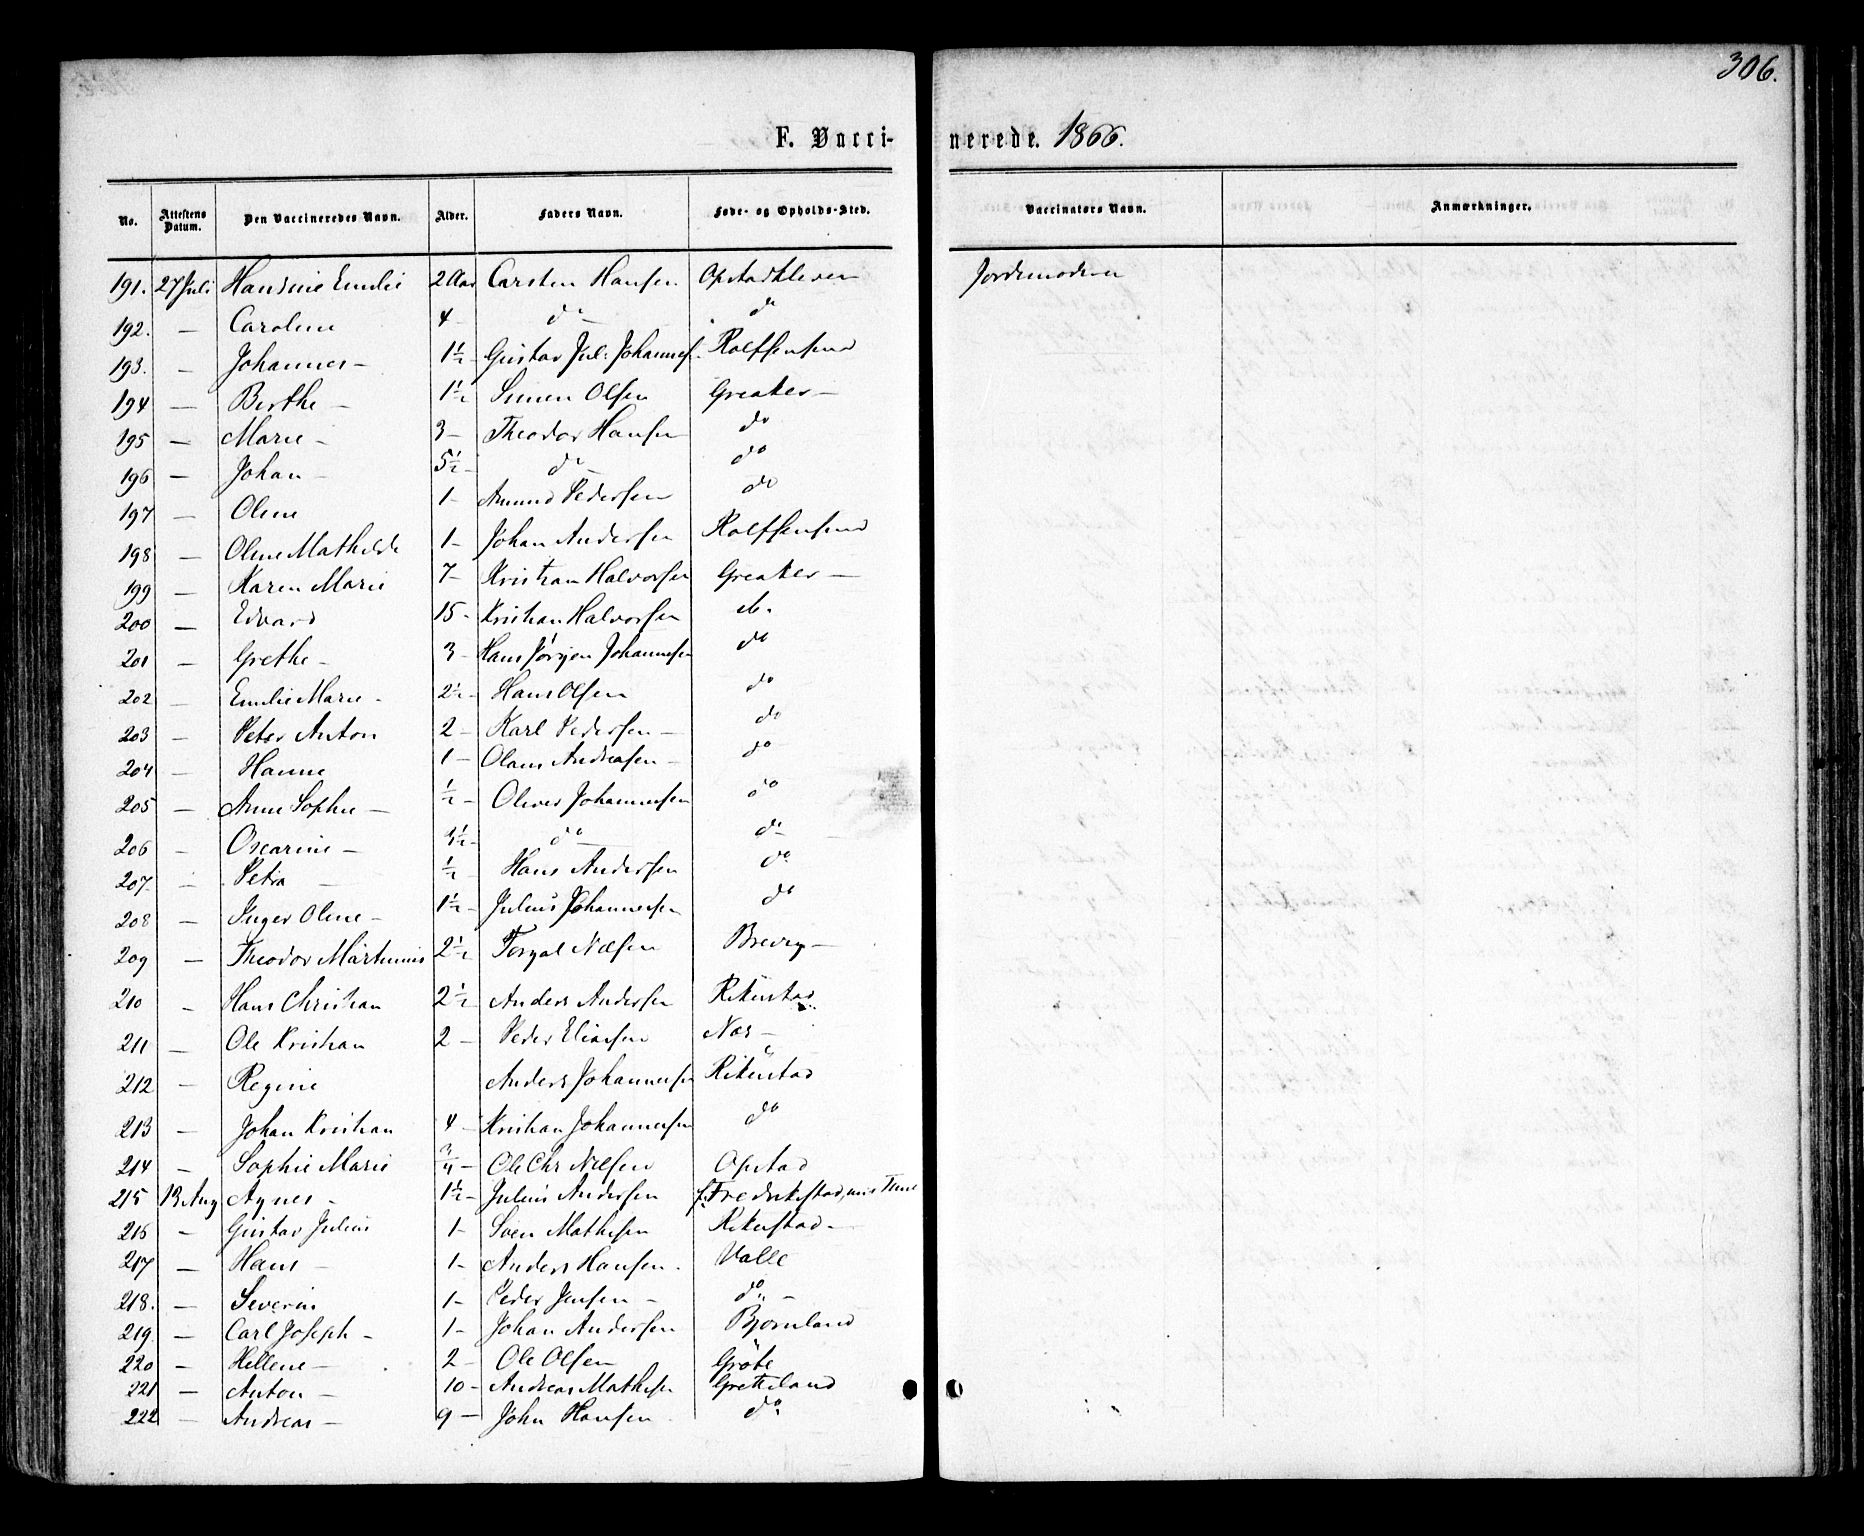 306.
F. Vaccinerede. 1866.
No. Attestens Datum. Den Vaccineredes Navn. Alder. Faders Navn. Føde- og Opholds-Sted. Vaccinators Navn. Anmærkninger.
191. 27 Juli Hansine Emilie 2 Aar Carsten Hansen Opstadkleven Jordemoderen
192. — Caroline 4 - do — do
193. — Johannes — 1½ Gustav Jul: Johannes. Rolfsensund
194 — Berthe — 1½ Simen Olsen Greaker —
195 — Marie — 3 — Theodor Hansen do
196 — Johan — 5½ - do — do
197 — Oline 1 - Amund Pedersen do
198 — Oline Mathilde 1 - Johan Andersen Rolfsensund
199 — Karen Marie 7 - Kristian Halvorsen Greaker —
200 — Edvard 15 - Kristian Halvorsen do.
201 — Grethe — 3 - Hans Jørgen Johannesen do
202 — Emilie Marie - 2½ - Hans Olsen do
203 — Peter Anton 2 - Karl Pedersen — do
204 — Hanne 1 - Olaus Andreasen - do
205 — Anne Sophie — ½ - Oliver Johannesen do
206 — Oscarine — 3½ - do — do
207. - Petra — ½ - Hans Andersen do
208 — Inger Oline - 1½ - Julius Johannesen do
209 — Theodor Martinius 2½ Torgal Nilsen Brevig —
210 - Hans Christian 2½ Anders Andersen Rikustad
211 — Ole Kristian 2 — Peder Eliasen Næs —
212 — Regine Anders Johannesen Rikustad
213 — Johan Kristian 4 - Kristian Johannesen do
214 - Sophie Marie ¾ - Ole Chr Nilsen Opstad
215 13 Aug Agnes - 1½ - Julius Andersen f. Fredrikstad, Tune
216 - Gustav Julius 1 - Sven Mathisen Rikustad —
217 — Hans — 1 - Anders Hansen. Valle
218. — Severin 1 - Peder Jensen — do —
219 — Carl Joseph - 1 - Johan Andersen Bjørnland
220 — Hellene — 2 - Ole Olsen Gröte
221 — Anton — 10 - Andreas Mathisen Gretteland
222 — Andreas — 9 — John Hansen do